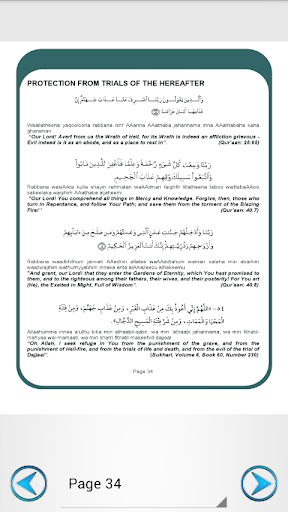 PROTECTION FROM TRIALS OF THE HEREAFTER
وَالَّذِينَ يَقُولُونَ رَبَّنَا اصْرِفْ عَنَّا عَذَابَ جَهَنَّمَ إِنَّ
عَذَابَهَا كَانَ غَرَامًا
Waallatheena yaqooloona rabbana isrif AAanna AAathaba jahannama inna AAathabaha kana
gharaman
"Our Lord! Avert from us the Wrath of Hell, for its Wrath is indeed an affliction grievous -
Evil indeed is it as an abode, and as a place to rest in".
(Qur'aan: 25:65)
رَبَّنَا وَسِعْتَ كُلَّ شَيْءٍ رَّحْمَةً وَعِلْمًا فَاغْفِرْ لِلَّذِينَ تَابُوا
وَاتَّبَعُوا سَبِيلَكَ وَقِهِمْ عَذَابَ الْجَحِيمِ
Rabbana wasiAAta kulla shayin rahmatan waAAilman faighfir lillatheena taboo waittabaAAoo
sabeelaka waqihim AAathaba aljaheemi
"Our Lord! You comprehend all things in Mercy and Knowledge. Forgive, then, those who
turn in Repentance, and follow Your Path; and save them from the torment of the Blazing
Fire!"
(Qur'aan: 40:7)
رَبَّنَا وَأَدْخِلْهُمْ جَنَّاتِ عَدْنٍ الَّتِي وَعَدْتَهُمْ وَمَنْ صَلَحَ مِنْ آبَائِهِمْ
وَأَزْوَاجِهِمْ وَذُرِّيَّاتِهِمْ إِنَّكَ أَنْتَ الْعَزِيزُ الْحَكِيمُ
Rabbana waadkhilhum jannati AAadnin allatee waAAadtahum waman salaha min abaihim
waazwajihim wathurriyyatihim innaka anta alAAazeezu alhakeemu
"And grant, our Lord! that they enter the Gardens of Eternity, which You hast promised
to them, and to the righteous among their fathers, their wives, and their posterity! For You art
(He), the Exalted in Might, Full of Wisdom".
(Qur'aan: 40:8)
٥٤ - اللَّهُمَّ إِنِّي أَعُوذُ بِكَ مِنْ عَذَابِ الْقَبْرِ، وَمِنْ عَذَابِ جَهَنَّمَ، وَمِنْ فِتْنَةِ
الْمَحْيَا وَالْمَمَاتِ، وَمِنْ شَرِّ فِتْنَةِ الْمَسِيحِ الدَّجَّالِ
"Oh Allah, I seek refuge in You from the punishment of the grave, and from the
punishment of Hell-fire, and from the trials of life and death, and from the evil of the trial of
Dajjaal".
(Bukhari, Volume 8, Book 60, Number 230)
Page 34
Page 34